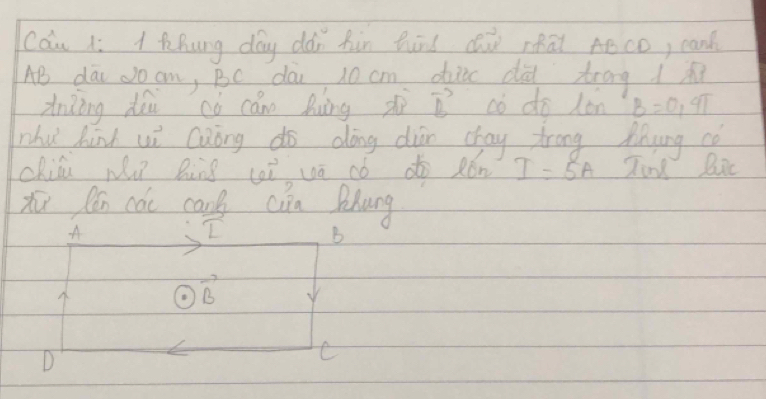 Câu 1: 1 khung dây dẫn kín hình chữ nhật ABCD, cạnh
AB dài 20 cm, BC dài 10 cm được đặt trong 1 từ
trường đều có cảm hứng từ B⃗ có độ lớn B=0,4T
như hình vẽ Cường độ dòng điện chạy trong khung có
chiều như hình vẽ và có độ lớn I = 5A Tính lực
từ lên các cạnh của khung
A I⃗ B
B⃗
D C